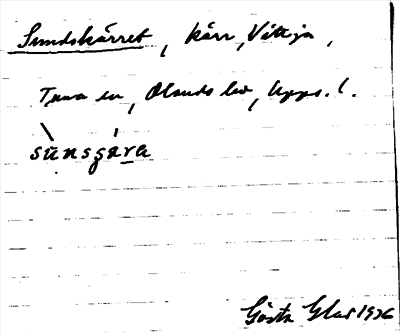 Sundskärret, kärr, Vittja,
Tuna sn, Olands hd, Upps. l.
sùnsgára
Gösta Glas 1936